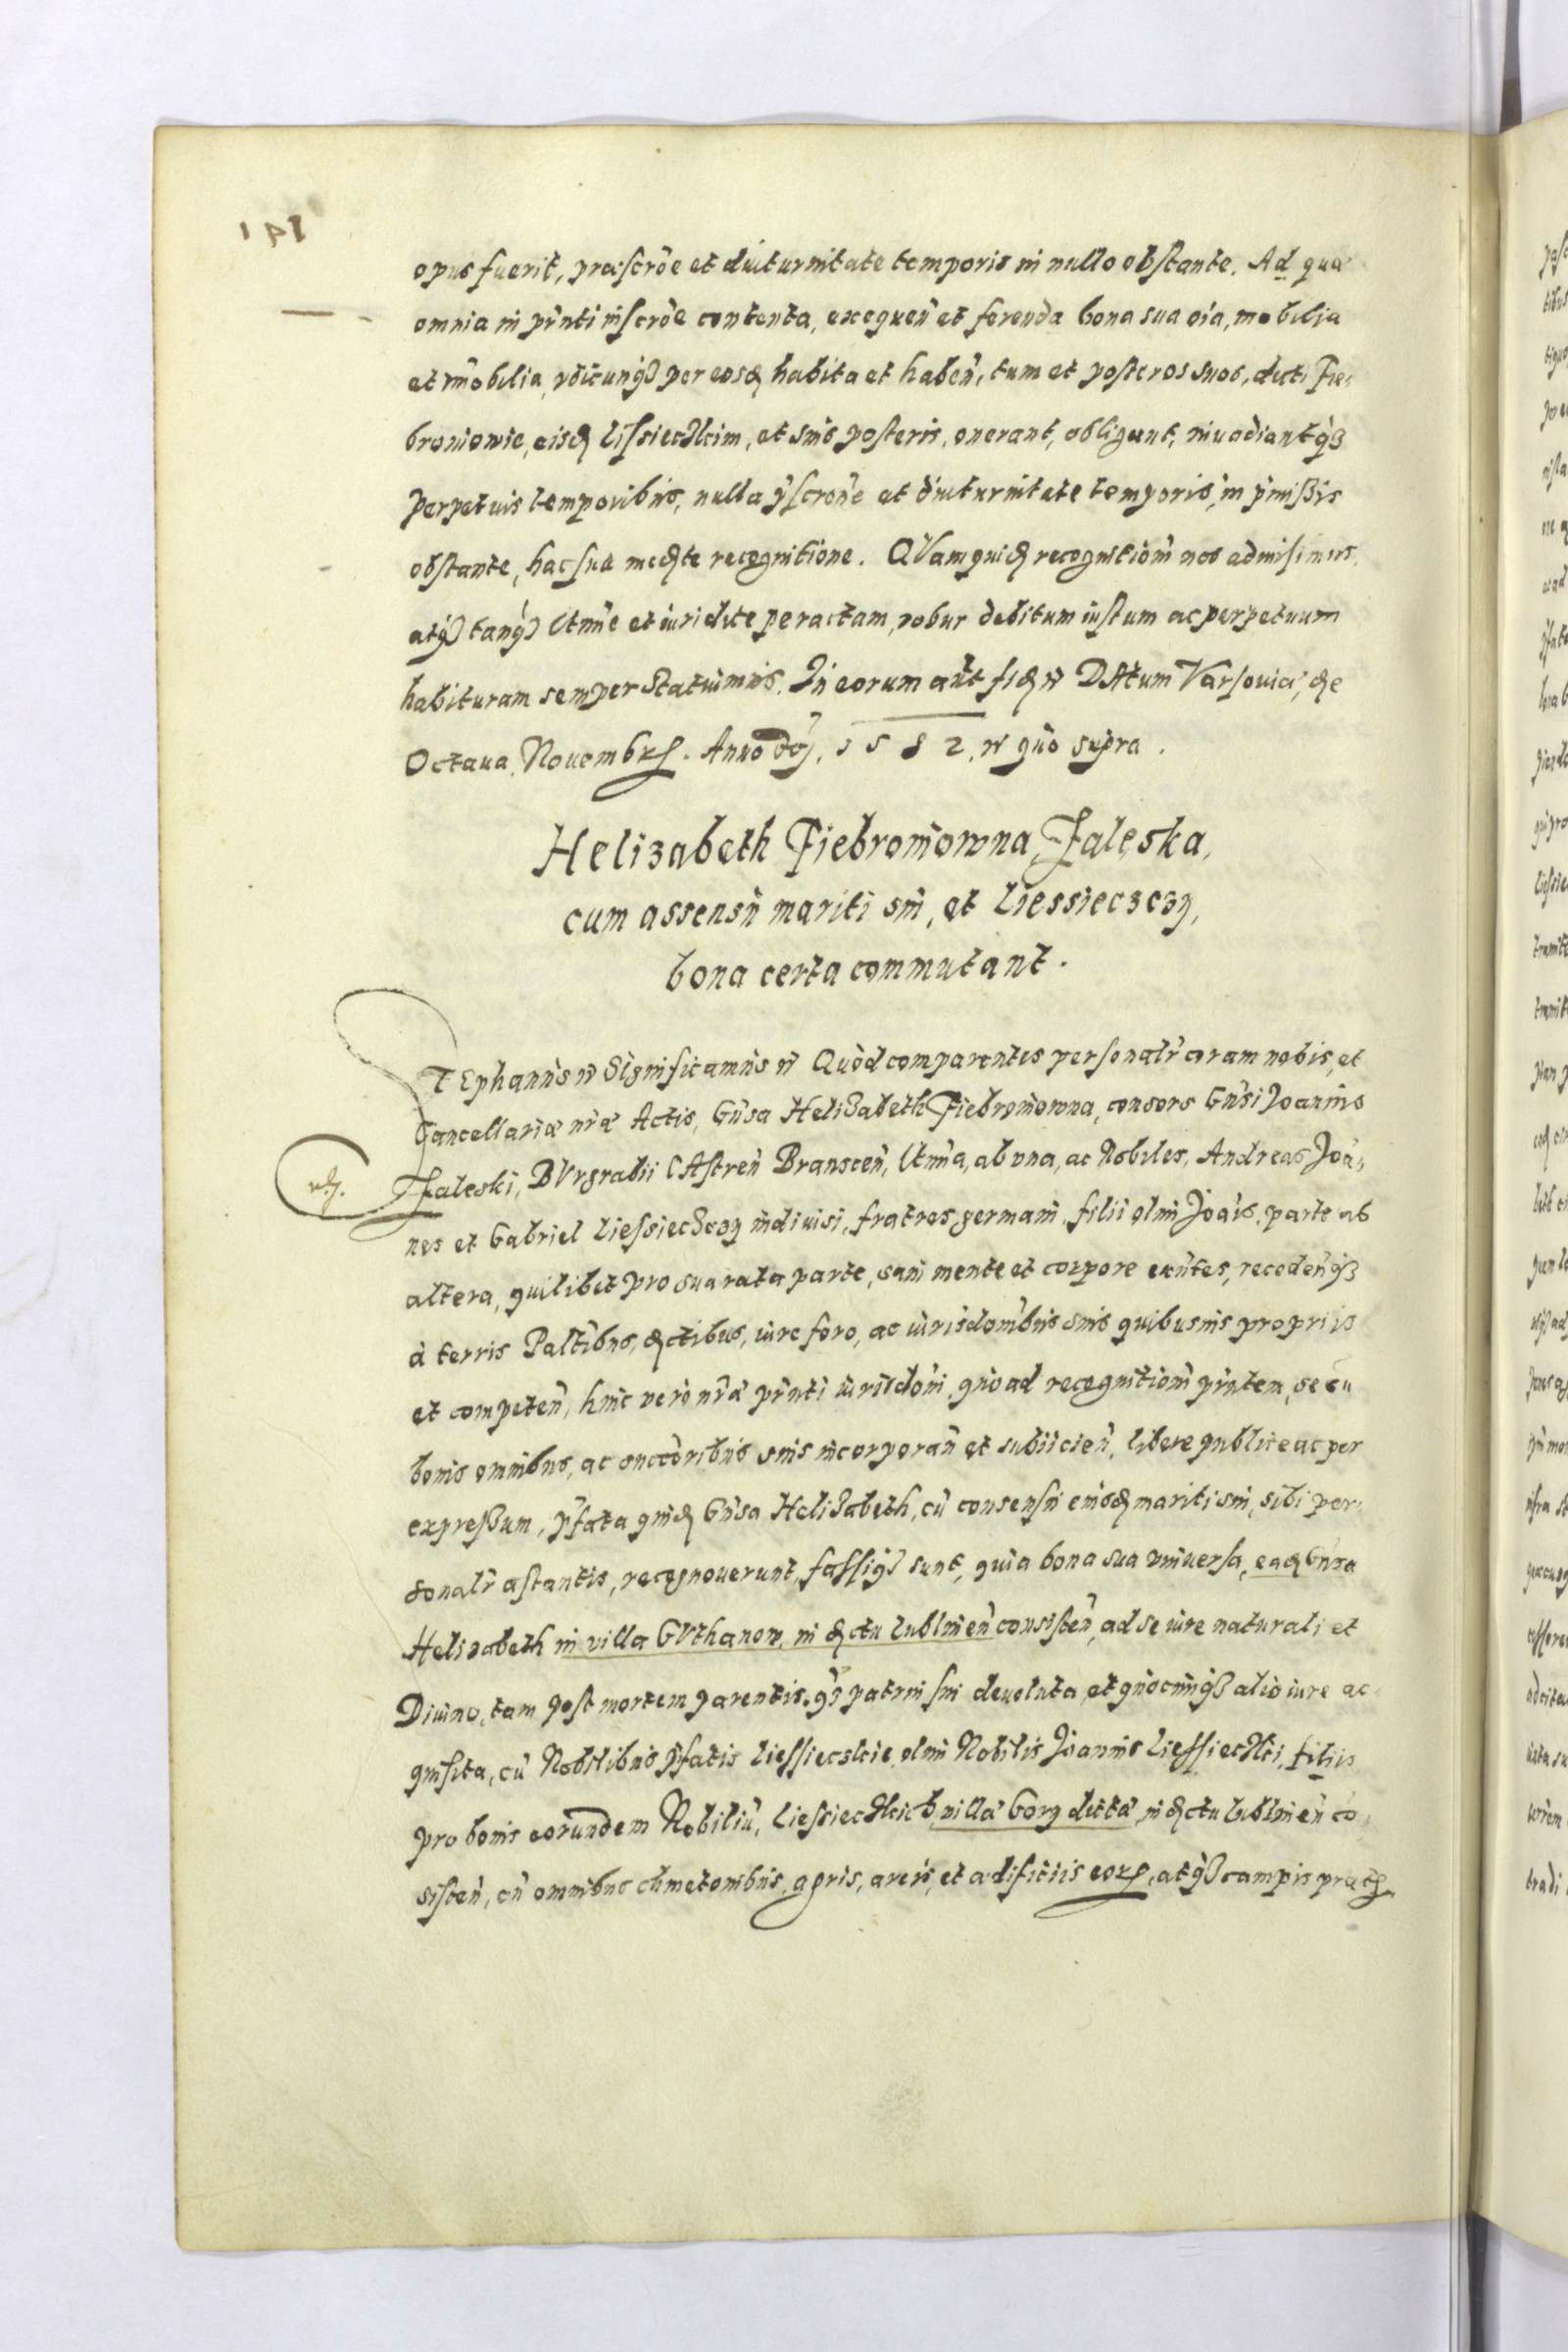 opus fuerit, præscrõe et diuturnitate temporis in nullo obstante. Ad quæ
omnia in pñti inscrõe contenta, exequeñ et ferenda bona sua oĩa, mobilia
et im̃obilia, per eosd habita et habeñ, tum et posteros suos, dicti Fie,
broniowie, eisd Lissieczkim, et suis posteris, onerant, obligant, inuadiantq3
perpetuis temporibus, nulla p̃scrone et diuturnitate temporis, in p̃missis
obstante, hac sua med̃te recognitione. QVamquid recognitiom̃ nos admisimus,
atq3 tanq3 Ltim̃e et iuridice peractam, robur debitum iustum ac perpetuum
habituram semper statuimus. In eorum aũt fid ꝛc̃ DAtum Varsouiæ, de
Octaua, Nouembr. Anno dnj, 1582, ꝛc̃ quo supra.
Helizabeth Fiebroniowna, Zaleska,
cum assensu mariti sui, et Liessieczczy,
bona certa commutant.
STEphanus ꝛc̃ Significamus ꝛc̃ Quòd comparentes personalr̃ coram nobis, et
Cancellariæ nr̃æ Actis, Gñsa Helizabeth Fiebroniowna, consors Gñsi Joannis
Zaleski, BVrgrabii CAstreñ Bransceñ, Ltim̃a, ab vna, ac Nobiles, Andreas, Joã,
nes et Gabriel Liessieczczy indiuisi, fratres germani, filii olim Joãis, parte ab
altera, quilibet pro sua rata parte, sani mente et corpore exñtes, recedeñq3
à terris Paltĩbus, dctibus, iure foro, ac iurisdom̃bus suis quibusuis propriis
et competeñ, huic verò nr̃æ pñti iurisdom̃i, quo ad recognitiom̃ pñtem, se cu
bonis omnibus, ac succoribus suis incorporañ et subiicieñ, libere publice ac per
expressum, p̃fata quid Gñsa Helizabeth, cũ consensu eiusd mariti sui, sibi per,
sonalr̃ astantis, recognouerunt, fassiq3 sunt, quia bona sua vniuersa, ead Gñsa
Helizabeth in villa GVthanow, in dctu Lublineñ consisteñ, ad se iure naturali et
Diuino, tam post mortem parentis, q3 patrui sui deuoluta, et quocunq3 alio iure ac,
quisita, cũ Nobilibus p̃fatis Liessieczkie, olim Nobilis Joannis Liessieczki, filiis
pro bonis eorundem Nobiliũ, Liessieczkich, villa Gory dicta, in dctu Lublineñ co
sisteñ, cũ omnibus cmetonibus, agris, areis, et ædificiis eor, atq3 campis prat